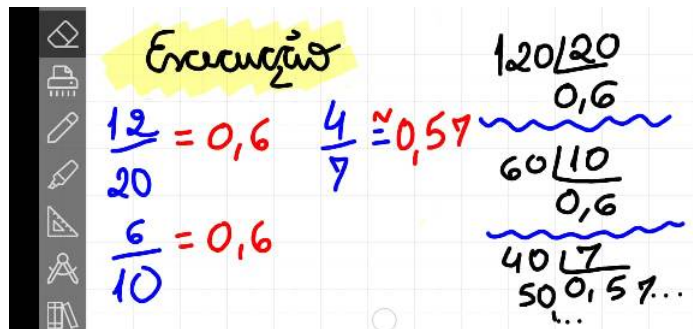 Execução
12/20 = 0,6
4/7 ≅ 0,57
6/10 = 0,6
120 | 20
0,6
60 | 10
0,6
40 | 7
50 0,57...
...